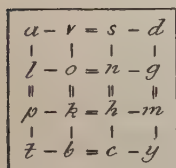 a - v = s - d
l - o = n - g
p - k = h - m
t - b = c - y